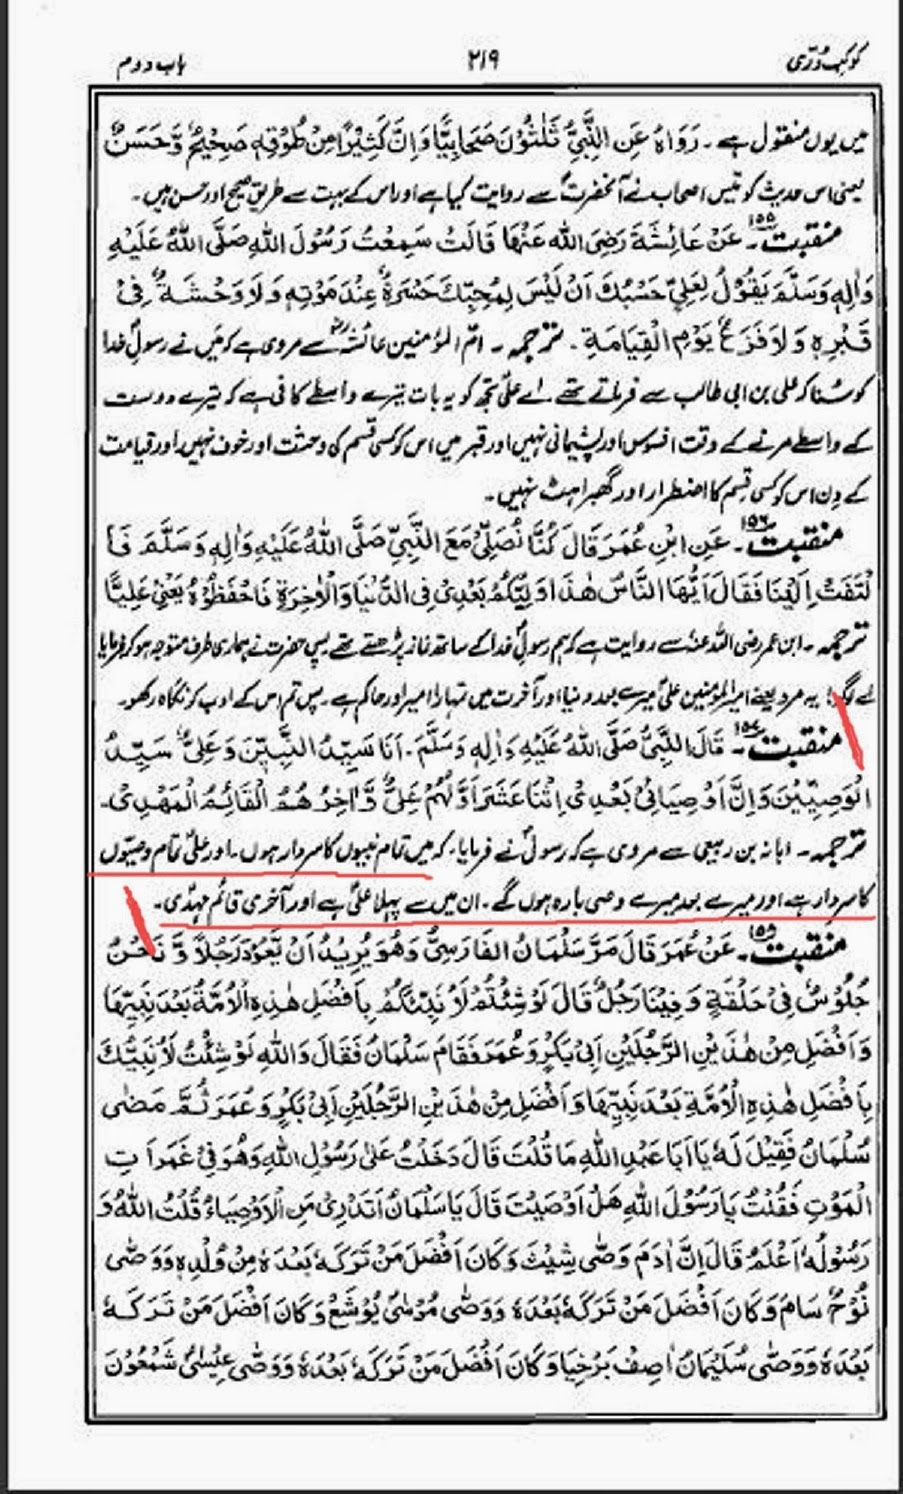 کوکب دُرّی ۲۱۹ باب دوم
میں یوں منقول ہے۔ رَوَاہُ عَنِ النَّبِیِّ ثَلٰثُوْنَ صَحَابِیًّا وَاِنَّ کَثِیْرًا مِنْ طُرُقِہٖ صَحِیْحٌ وَّحَسَنٌ
یعنی اس حدیث کو تیس اصحاب نے آنحضرت سے روایت کیا ہے اور اس کے بہت سے طریق صحیح اور حسن ہیں۔
منقبت ۱۵۵۔ عَنْ عَائِشَۃَ رَضِیَ اللہُ عَنْہَا قَالَتْ سَمِعْتُ رَسُوْلَ اللہِ صَلَّی اللہُ عَلَیْہِ
وَاٰلِہٖ وَسَلَّمَ یَقُوْلُ لِعَلِیٍّ حَسْبُکَ اَنْ لَیْسَ لِمُحِبِّکَ حَسْرَۃٌ عِنْدَ مَوْتِہٖ وَلَا وَحْشَۃٌ فِیْ
قَبْرِہٖ وَلَا فَزَعٌ یَوْمَ الْقِیَامَۃِ۔ ترجمہ۔ ام المؤمنین عائشہؓ سے مروی ہے کہ میں نے رسولِ خدا
کو سُنا کہ علی بن ابی طالب سے فرماتے تھے۔ اے علیؑ تجھ کو یہ بات تیرے واسطے کافی ہے کہ تیرے دوست
کے واسطے مرنے کے وقت افسوس اور پشیمانی نہیں اور قبر میں اس کو کسی قسم کی وحشت اور خوف نہیں اور قیامت
کے دن اس کو کسی قسم کا اضطرار اور گھبراہٹ نہیں۔
منقبت ۱۵۶۔ عَنِ ابْنِ عُمَرَ قَالَ کُنَّا نُصَلِّیْ مَعَ النَّبِیِّ صَلَّی اللہُ عَلَیْہِ وَاٰلِہٖ وَسَلَّمَ فَا
لْتَفَتَ اِلَیْنَا فَقَالَ اَیُّہَا النَّاسُ ھٰذَا وَلِیُّکُمْ بَعْدِیْ فِی الدُّنْیَا وَالْاٰخِرَۃِ فَاحْفَظُوْہُ یَعْنِیْ عَلِیًّا
ترجمہ۔ ابن عمر رضی اللہ عنہ سے روایت ہے کہ ہم رسولِ خدا کے ساتھ نماز پڑھتے تھے پس حضرت نے ہماری طرف متوجہ ہو کر فرمایا
اے لوگو! یہ مرد یعنے امیر المؤمنین علیؑ میرے بعد دنیا اور آخرت میں تمہارا امیر اور حاکم ہے۔ پس تم اس کے ادب کو نگاہ رکھو۔
منقبت ۱۵۷۔ قَالَ النَّبِیُّ صَلَّی اللہُ عَلَیْہِ وَاٰلِہٖ وَسَلَّمَ۔ اَنَا سَیِّدُ النَّبِیّیْنَ وَعَلِیٌّ سَیِّدُ
الْوَصِیِّیْنَ وَاِنَّ اَوْصِیَائِیْ بَعْدِیْ اِثْنَا عَشَرَ اَوَّلُہُمْ عَلِیٌّ وَّاٰخِرُھُمُ الْقَائِمُ الْمَھْدِیُ۔
ترجمہ۔ ابانہ بن ربیعی سے مروی ہے کہ رسولؐ نے فرمایا۔ کہ میں تمام نبیوں کا سردار ہوں۔ اور علیؑ تمام وصیّوں
کا سردار ہے اور میرے بعد میرے وصی بارہ ہوں گے۔ ان میں سے پہلا علیؑ ہے اور آخری قائم مہدی۔
منقبت ۱۵۸۔ عَنْ عُمَرَ قَالَ مَرَّ سَلْمَانُ الْفَارَسِیُّ وَھُوَ یُرِیْدُ اَنْ یَّعُوْدَ رَجُلًا وَّنَحْنُ
جُلُوْسٌ فِیْ حَلْقَۃٍ وَفِیْنَا رَجُلٌ قَالَ لَوْ شِئْتُمْ لَاُنَبِّئَنَّکُمْ بِاَفْضَلِ ھٰذِہِ الْاُمَّۃِ بَعْدَ نَبِیِّہَا
وَاَفْضَلِ مِنْ ھٰذَیْنِ الرَّجُلَیْنِ اَبِیْ بَکْرٍ وَعُمَرَ فَقَامَ سَلْمَانُ فَقَالَ وَاللہِ لَوْ شِئْتُ لَاُنَبِّیَنَّکَ
بِاَفْضَلِ ھٰذِہِ الْاُمَّۃِ بَعْدَ نَبِیِّہَا وَاَفْضَلِ مِنْ ھٰذَیْنِ الرَّجُلَیْنِ اَبِیْ بَکْرٍ وَعُمَرَ ثُمَّ مَضٰی
سُلْمَانُ فَقِیْلَ لَہٗ یَا اَبَا عَبْدِ اللہِ مَا قُلْتَ قَالَ دَخَلْتُ عَلٰی رَسُوْلِ اللہِ وَھُوَ فِیْ غَمَرَاتِ
الْمَوْتِ فَقُلْتُ یَا رَسُوْلَ اللہِ ھَلْ اَوْصَیْتَ قَالَ یَا سَلْمَانُ اَتَدْرِیْ مَنِ الْاَوْصِیَاءُ قُلْتُ اللہُ وَ
رَسُوْلُہٗ اَعْلَمُ قَالَ اِنَّ اٰدَمَ وَصّٰی شِیْثَ وَکَانَ اَفْضَلَ مَنْ تَرَکَہٗ بَعْدَہٗ مِنْ وُلْدِہٖ وَوَصّٰی
نُوْحٌ سَامَ وَکَانَ اَفْضَلَ مَنْ تَرَکَہٗ بَعْدَہٗ وَوَصّٰی مُوْسٰی یُوْشَعَ وَکَانَ اَفْضَلَ مَنْ تَرَکَہٗ
بَعْدَہٗ وَوَصّٰی سُلَیْمَانُ اٰصِفَ بَرْخِیَا وَکَانَ اَفْضَلَ مَنْ تَرَکَہٗ بَعْدَہٗ وَوَصّٰی عِیْسٰی شَمْعُوْنَ